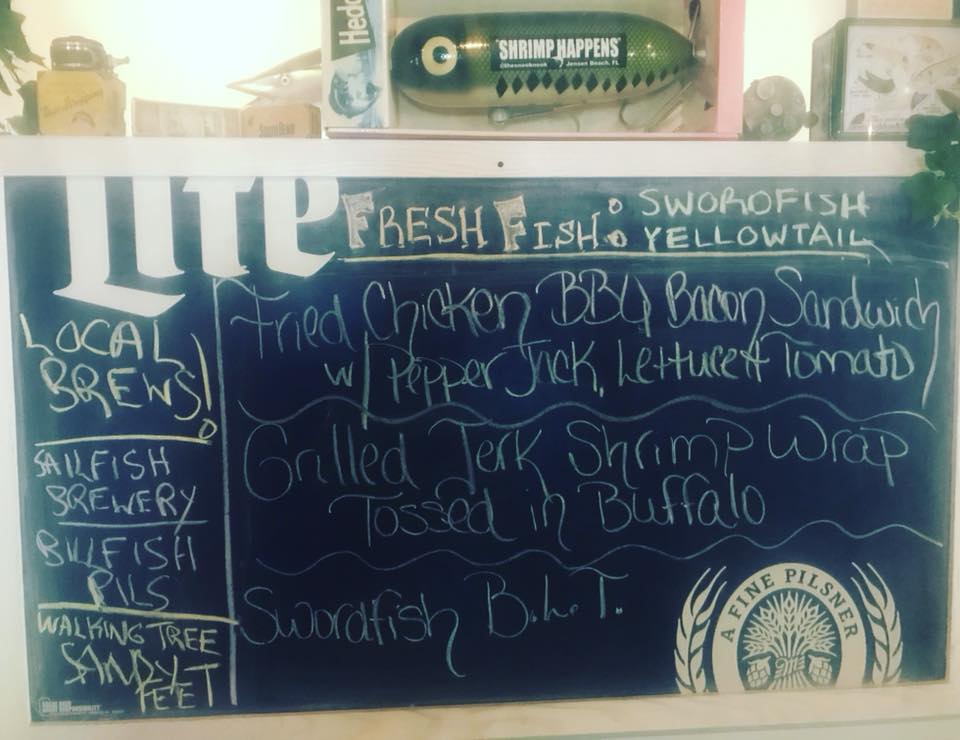 Hedd
"SHRIMP HAPPENS"
@thesnooknook Jensen Beach, FL
SOUTH BEND
Lite
FRESH FISH: SWORDFISH
YELLOWTAIL
LOCAL
BREWS!
SAILFISH
BREWERY
BILLFISH
PILS
WALKING TREE
SANDY
FEET
Fried Chicken BBQ Bacon Sandwich
w/ Pepper Jack, Lettuce & Tomato
Grilled Jerk Shrimp Wrap
Tossed in Buffalo
Swordfish B.L.T.
A FINE PILSNER